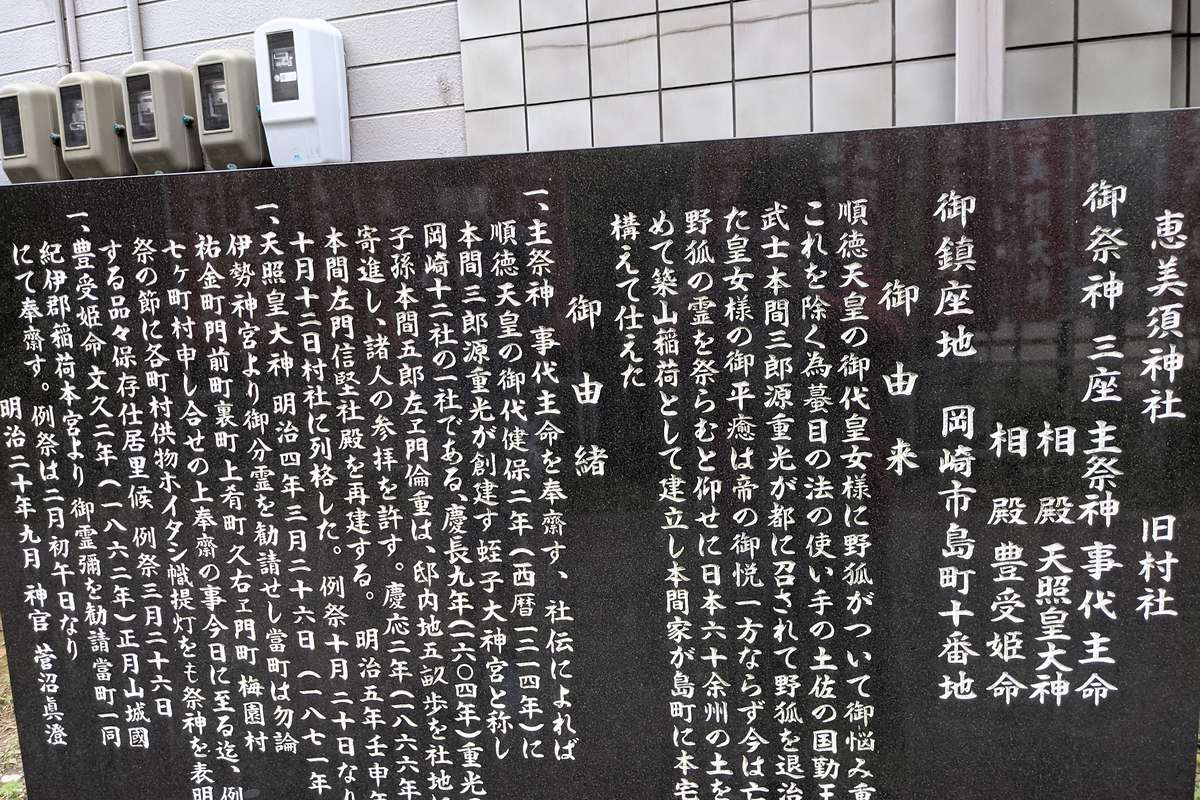 恵美須神社 旧村社
御祭神 三座 主祭神 事代主命
相殿 天照皇大神
相殿 豊受姫命
御鎮座地 岡崎市島町十番地
御由来
順徳天皇の御代皇女様に野狐がついて御悩み重
これを除く為蟇目の法の使い手の土佐の国勤王
武士本間三郎源重光が都に召されて野狐を退治
た皇女様の御平癒は帝の御悦一方ならず今は亡
野狐の霊を祭らむと仰せに日本六十余州の土を
めて築山稲荷として建立し本間家が島町に本宅
構えて仕えた
御由緒
一、主祭神 事代主命を奉齋す、社伝によれば
順徳天皇の御代健保二年(西暦一二一四年)に
本間三郎源重光が創建す 蛭子大神宮と称し
岡崎十二社の一社である、慶長九年(一六〇四年)重光
子孫本間五郎左ヱ門倫重は、邸内地五畝歩を社地
寄進し、諸人の参拝を許す。慶応二年(一八六六年
本間左門信堅社殿を再建する。 明治五年壬申年
十月十二日村社に列格した。 例祭十月二十日なり
一、天照皇大神 明治四年三月二十六日(一八七一年
伊勢神宮より御分霊を勧請せし當町は勿論
祐金町門前町裏町上肴町久右ヱ門町 梅園村
七ケ町村申し合せの上奉齋の事今日に至る迄、例
祭の節に各町村供物ホイタシ幟提灯をも祭神を表明
する品々保存仕居里候 例祭三月二十六日
一、豊受姫命 文久二年(一八六二年)正月山城國
紀伊郡稲荷本宮より 御霊彌を勧請當町一同
にて奉齋す。例祭は二月初午日なり
明治二十年九月 神官 菅沼眞澄